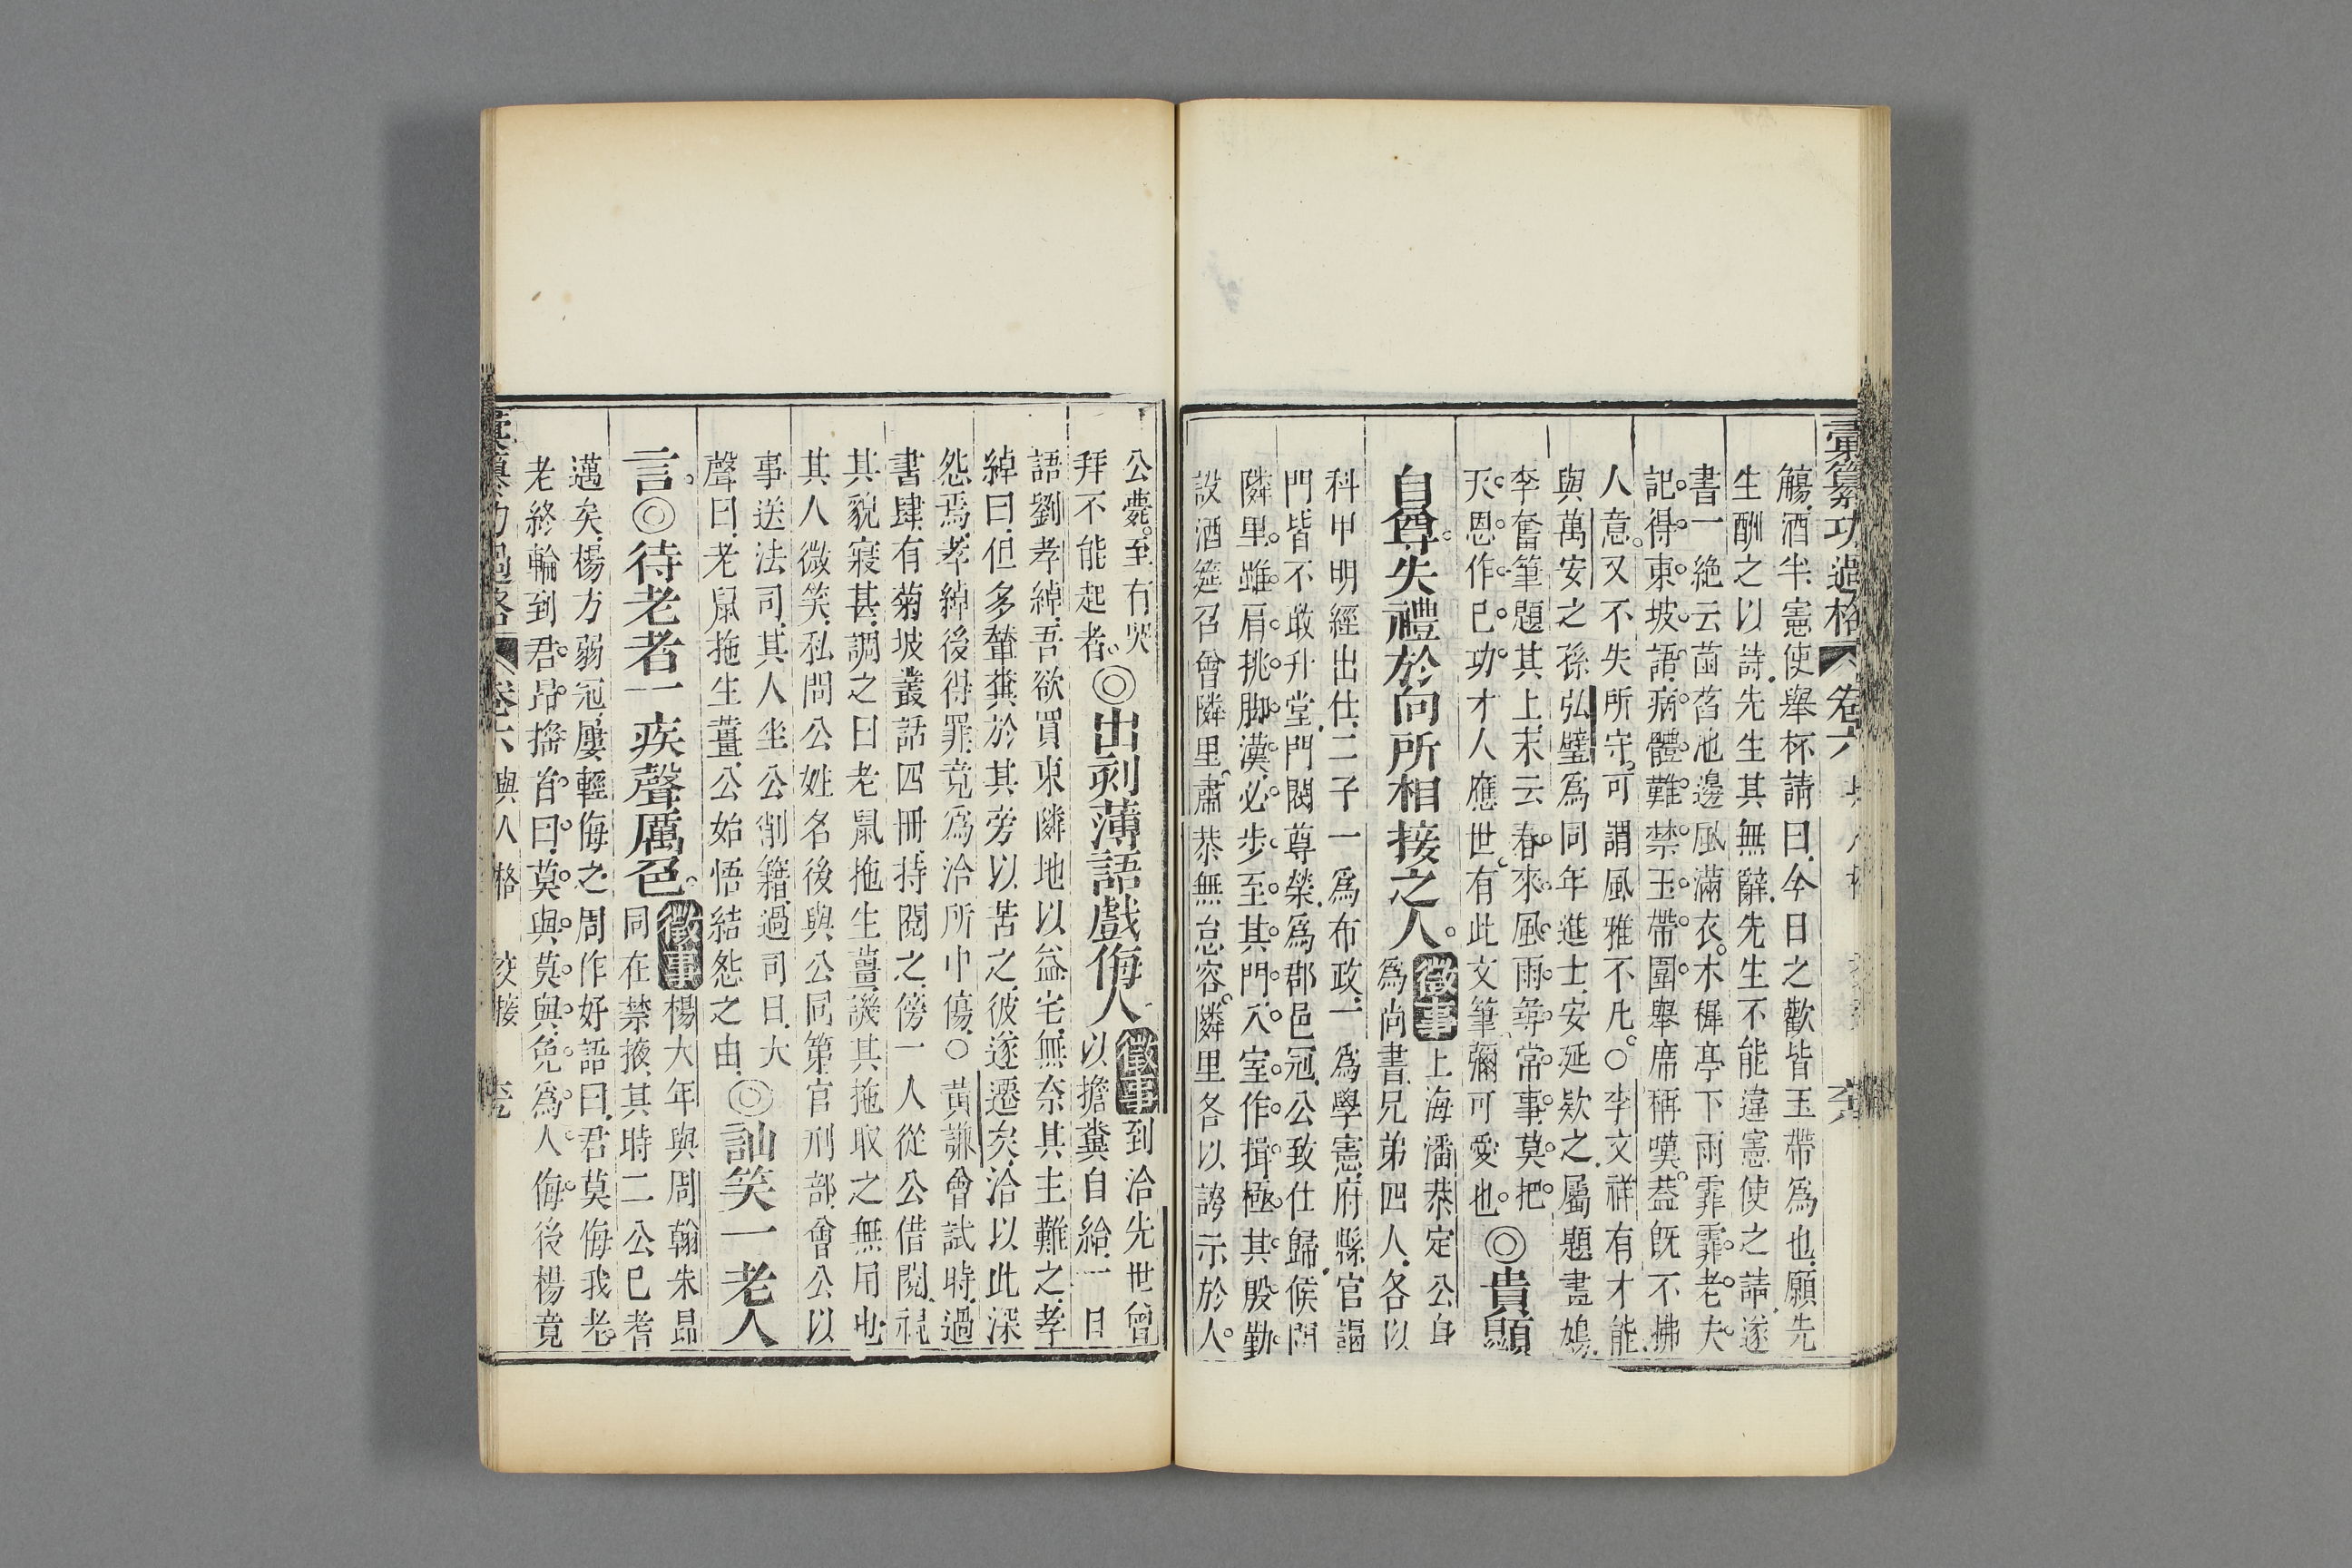 彙纂功過格 卷六
觴酒半憲使舉杯請曰今日之歡皆玉帶爲也願先
生酬之以詩先生其無辭先生不能違憲使之請遂
書一絕云菡萏池邊風滿衣木樨亭下雨霏霏老夫
記得東坡語病體難禁玉帶圍舉席稱嘆葢旣不拂
人意又不失所守可謂風雅不凡○李文祥有才能
與萬安之孫弘璧爲同年進士安延欵之屬題畫鳩
李奮筆題其上末云春來風雨尋常事莫把
天恩作已功才人應世有此文筆彌可愛也◎貴顯
自尊失禮於向所相接之人
徵事
上海潘恭定公身
爲尚書兄弟四人各以
科甲明經出仕二子一爲布政一爲學憲府縣官謁
門皆不敢升堂門閥尊榮爲郡邑冠公致仕歸候問
隣里雖肩挑脚漢必步至其門入室作揖極其殷勤
設酒筵召會隣里肅恭無怠容隣里各以誇示於人
公薨至有哭
拜不能起者◎出刻薄語戲侮人
徵事
到洽先世曾
以擔糞自給一日
語劉孝綽吾欲買東隣地以益宅無奈其主難之孝
綽曰但多輦糞於其旁以苦之彼遂遷矣洽以此深
怨焉孝綽後得罪竟爲洽所中傷○黃謙會試時過
書肆有菊坡叢話四冊持閱之傍一人從公借閱視
其貌寢甚調之曰老鼠拖生薑譏其拖取之無用也
其人微笑私問公姓名後與公同第官刑部會公以
事送法司其人坐公削籍過司日大
聲曰老鼠拖生薑公始悟結怨之由◎訕笑一老人
言◎待老者一疾聲厲色
徵事
楊大年與周翰朱昂
同在禁掖其時二公已耆
邁矣楊方弱冠屢輕侮之周作好語曰君莫侮我老
老終輪到君昂搖首曰莫與莫與免爲人侮後楊竟
卷六 與人格 交接